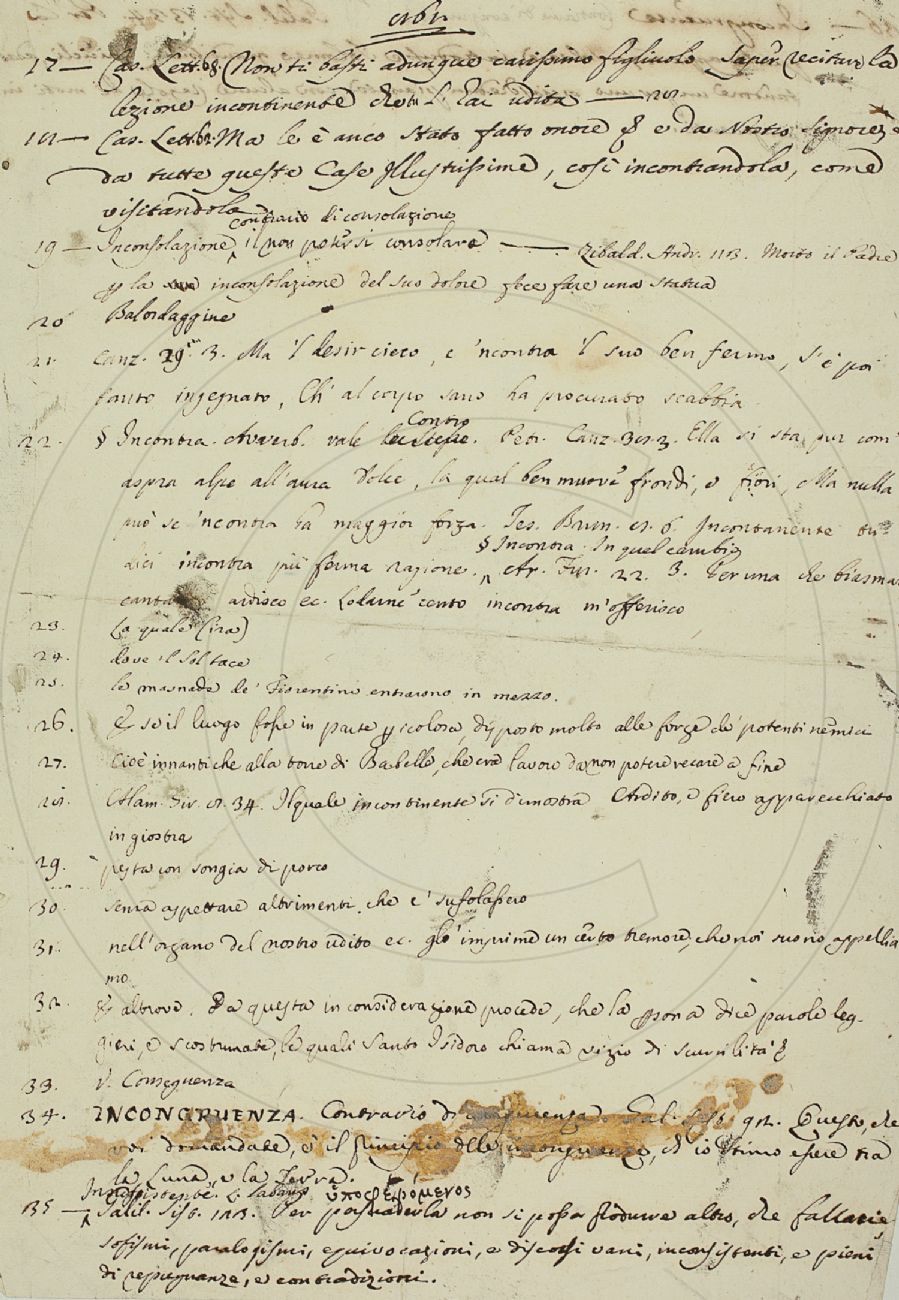 17— Cas. Lett. 68. Non ti basti adunque carissimo figliuolo saper recitare la
lezione incontinente che tu l'hai udita —
Cas. Lett. Ma le è anco stato fatto onore e da Nostro Signore, e
da tutte queste Case Illustrissime, così incontrandola, come
visitandola
contrario di consolazione
19— Inconsolazione, il non potersi consolare — Zibald. Andr. 113. Morto il Padre
p la inconsolazione del suo dolore fece fare una statua
20 Balordaggine
21. Canz. 29. 3. Ma 'l desir cieco, e 'ncontra 'l suo ben fermo, S'è poi
tanto ingegnato, Ch' al corpo sano ha procurato scabbia
Contro
22. § Incontra. Avverb. vale. Petr. Canz. Ella si sta pur com'
aspra alpe all'aura Dolce, la qual ben muove frondi, e fiori, Ma nulla
può se 'ncontra ha maggior forza. Tes. Brun. 6. Incontanente tu
§ Incontra. In quel cambio
dici incontra più ferma ragione. Ar. Fur. 22. 3. Per una che biasmar
cantando ardisco ec. Lodarne cento incontra m'offerisco
23. La quale (ira)
24. dove 'l Sol tace
25. le masnade de' Fiorentini entrarono in mezzo.
26. E se il luogo fosse in parte pscolosa, disposto molto alle forze de' potenti nemici
27. Cioè innanti che alla torre di Babello, che era lavoro da non potere recare a fine
Alam. Gir. 34. Il quale incontinente si dimostra Ardito, e fiero apparecchiato
in giostra
29. pesta con songia di porco
30. senza aspettare altrimenti, che e' sufolassero
31. nell'organo del nostro udito ec. gl'imprime un certo tremore, che noi suono appellia
mo
32. E altrove. Da questa inconsiderazione procede, che la psona dice parole leg-
gieri, e scostumate, le quali Santo Isidoro chiama vizio di scurrilità
33. V. Conseguenza
34. INCONGRUENZA. Contrario di congruenza. Gal. Sist. Questo, che
voi domandate, è il principio delle incongruenze, ch' io stimo essere tra
la Luna, e la Terra.
35— Galil. Sist. Per persuaderla non si possa produrre altro, che fallacie,
sofismi, paralogismi, equivocazioni, e discorsi vani, inconsistenti, e pieni
di repugnanze, e contradizioni.